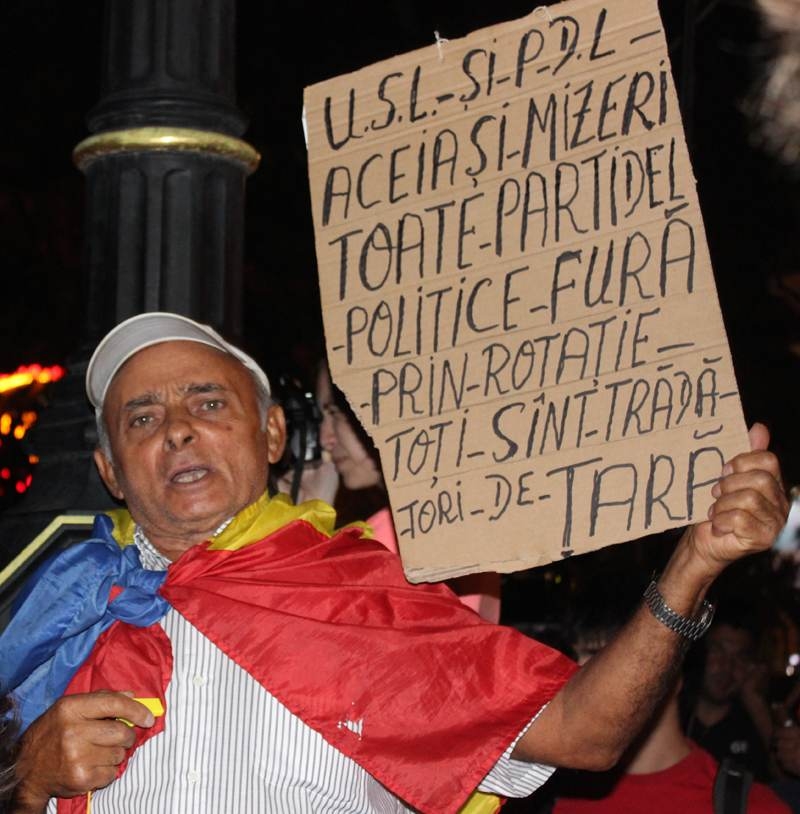 U.S.L.-ȘI-P.D.L-
ACEIAȘI-MIZERI
TOATE-PARTIDEL
-POLITICE-FURĂ
PRIN-ROTAȚIE-
TOȚI-SÎNT-TRĂDĂ-
TORI-DE-ȚARĂ